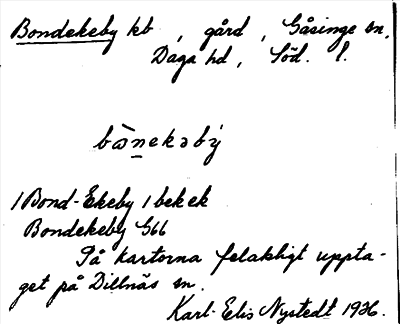 Bondekeby kb, gård, Gåsinge sn,
Daga hd, Söd. l.
bὼnekəbý
/Bond-Ekeby/bek ek
Bondekeby G66
På kartorna felaktigt uppta-
get på Dillnäs sn.
Karl-Edis Nystedt 1936.